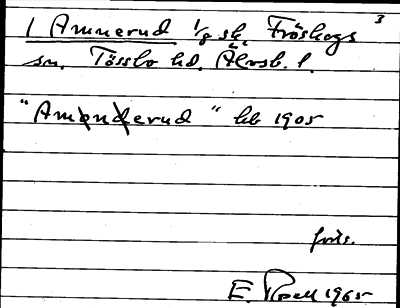 3
1 Amnerud 1/8 sk, Fröskogs
sn. Tössbo hd. Älvsb. l.
"Amonderud" hb 1905
E. Rosell 1965